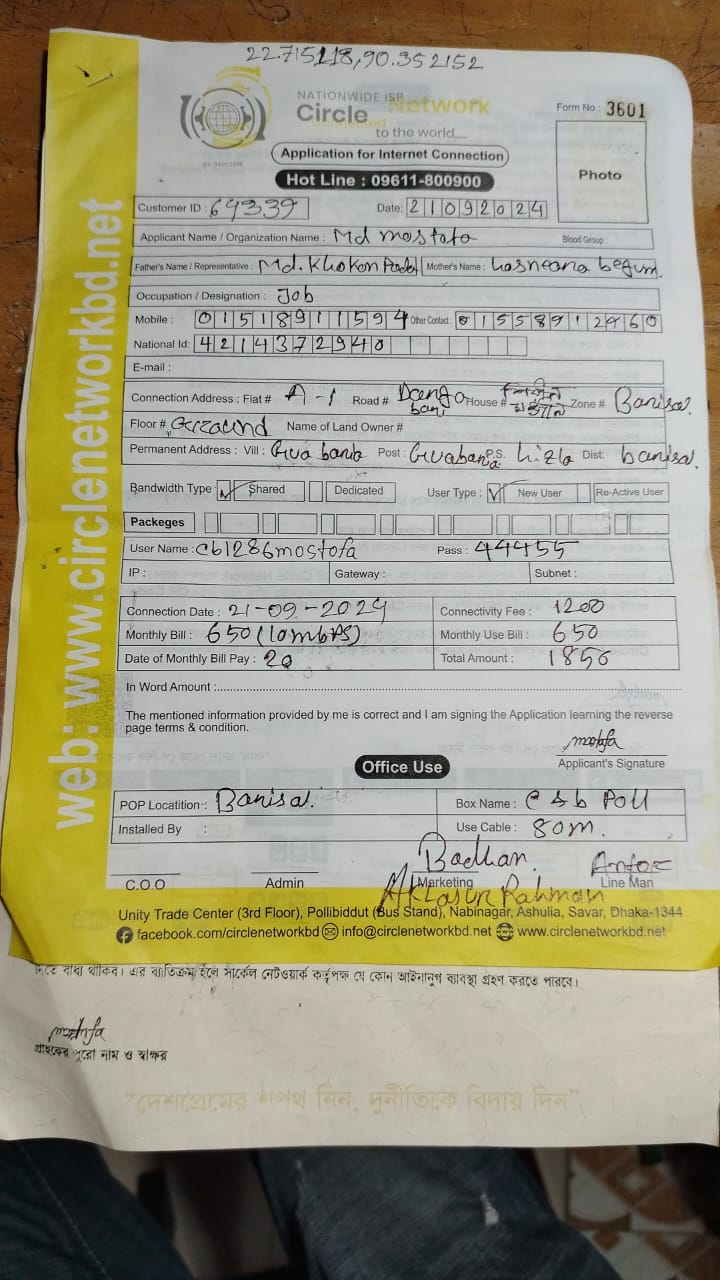 22.715118,90.352152
NATIONWIDE ISP
Circle Network
to the world.....
Form No : 3601
Application for Internet Connection
Photo
Hot Line : 09611-800900
Customer ID : 64339 Date: 21092024
Applicant Name / Organization Name : Md mostafa Blood Group :
Father's Name / Representative : Md. Khokon Mother's Name : hasneana begum.
Occupation / Designation : Job
Mobile : 01518911594 Other Contact : 01558912460
National Id: 4214372940
E-mail :
Connection Address : Flat # A-1 Road # House # Zone # Barisal.
Floor # Name of Land Owner #
Permanent Address : Vill : Guabaria Post : Guabaria P.S. hizla Dist: barisal.
Bandwidth Type Shared Dedicated User Type : New User Re-Active User
Packeges
User Name : cb1286mostofa Pass : 44455
IP : Gateway : Subnet :
Connection Date : 21-09-2024 Connectivity Fee : 1200
Monthly Bill : 650 (10mbps) Monthly Use Bill : 650
Date of Monthly Bill Pay : 20 Total Amount : 1850
In Word Amount :
The mentioned information provided by me is correct and I am signing the Application learning the reverse
page terms & condition.
mostafa
Applicant's Signature
Office Use
POP Locatition : Barisal. Box Name : C & b Poll
Installed By : Use Cable : 80m.
Badhan.
C.O.O Admin Marketing Line Man
Rahman
Unity Trade Center (3rd Floor), Pollibiddut (Bus Stand), Nabinagar, Ashulia, Savar, Dhaka-1344
facebook.com/circlenetworkbd info@circlenetworkbd.net www.circlenetworkbd.net
web: www.circlenetworkbd.net
দিতে বাধ্য থাকিব। এর ব্যতিক্রম হলে সার্কেল নেটওয়ার্ক কর্তৃপক্ষ যে কোন আইনানুগ ব্যবস্থা গ্রহণ করতে পারবে।
mostafa
গ্রাহকের পুরো নাম ও স্বাক্ষর
"দেশপ্রেমের শপথ নিন, দুর্নীতিকে বিদায় দিন"